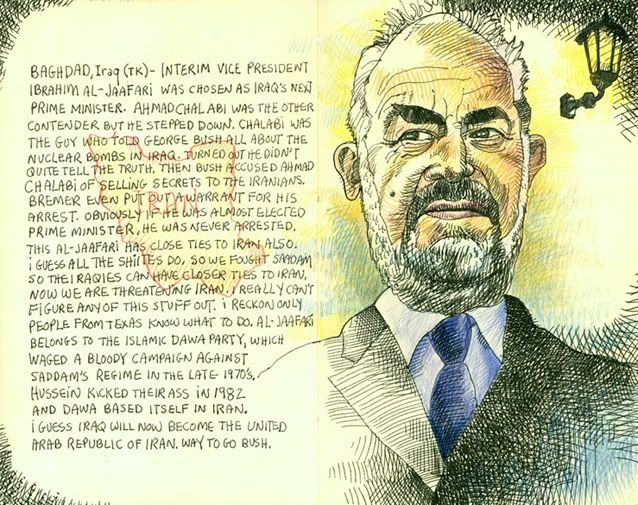 BAGHDAD, Iraq (TK) - INTERIM VICE PRESIDENT
IBRAHIM AL-JAAFARI WAS CHOSEN AS IRAQ'S NEXT
PRIME MINISTER. AHMAD CHALABI WAS THE OTHER
CONTENDER BUT HE STEPPED DOWN. CHALABI WAS
THE GUY WHO TOLD GEORGE BUSH ALL ABOUT THE
NUCLEAR BOMBS IN IRAQ. TURNED OUT HE DIDN'T
QUITE TELL THE TRUTH. THEN BUSH ACCUSED AHMAD
CHALABI OF SELLING SECRETS TO THE IRANIANS.
BREMER EVEN PUT OUT A WARRANT FOR HIS
ARREST. OBVIOUSLY IF HE WAS ALMOST ELECTED
PRIME MINISTER, HE WAS NEVER ARRESTED.
THIS AL-JAAFARI HAS CLOSE TIES TO IRAN ALSO.
i GUESS ALL THE SHiiTES DO, SO WE FOUGHT SAADAM
SO THE IRAQIES CAN HAVE CLOSER TIES TO IRAN,
NOW WE ARE THREATENING IRAN. I REALLY CAN'T
FIGURE ANY OF THIS STUFF OUT. i RECKON ONLY
PEOPLE FROM TEXAS KNOW WHAT TO DO. AL-JAAFARI
BELONGS TO THE ISLAMIC DAWA PARTY, WHICH
WAGED A BLOODY CAMPAIGN AGAINST
SADDAM'S REGIME IN THE LATE 1970'S.
HUSSEIN KICKED THEIR ASS IN 1982
AND DAWA BASED ITSELF IN IRAN.
i GUESS IRAQ WILL NOW BECOME THE UNITED
ARAB REPUBLIC OF IRAN. WAY TO GO BUSH.